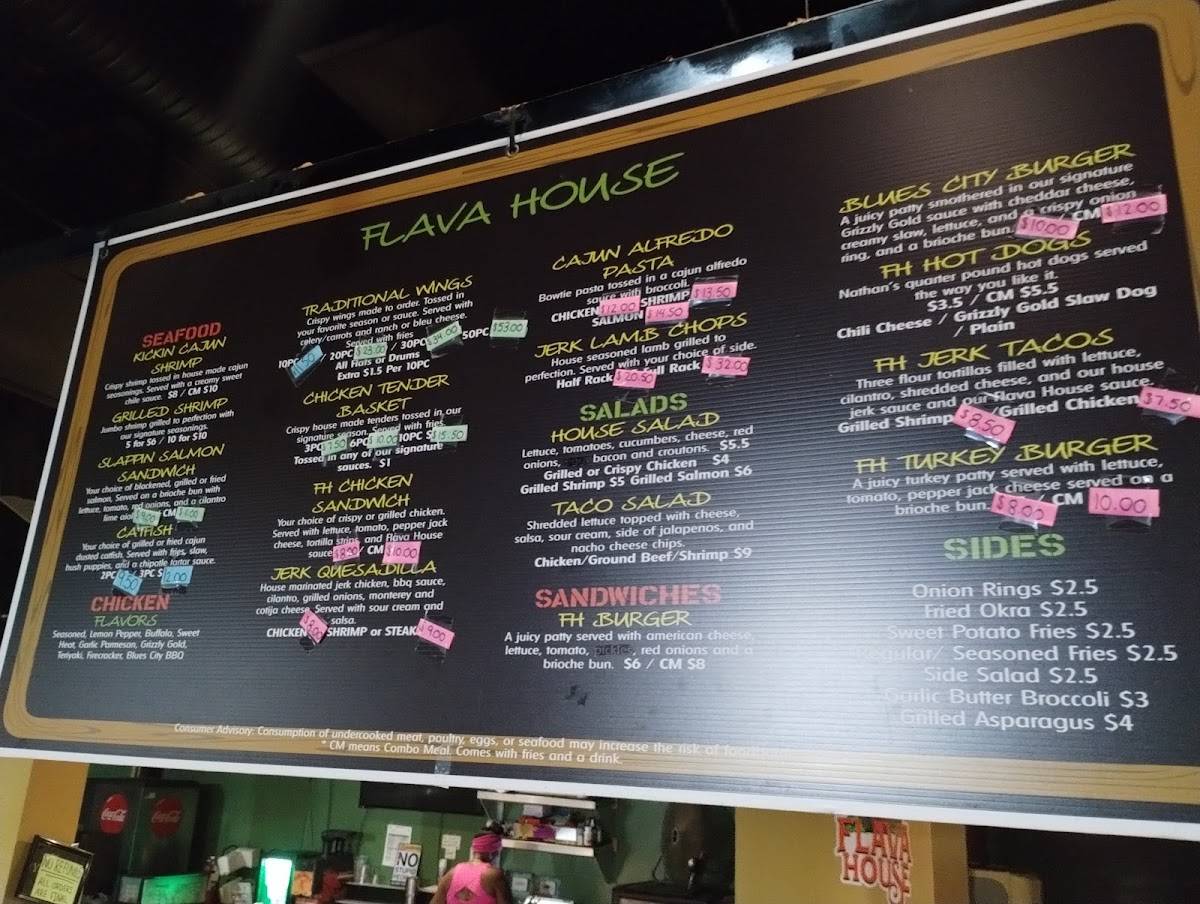 FLAVA HOUSE
SEAFOOD
KICKIN CAJUN
SHRIMP
Crispy shrimp tossed in house made cajun
seasonings. Served with a creamy sweet
chile sauce. $8 / CM $10
GRILLED SHRIMP
Jumbo shrimp grilled to perfection with
our signature seasonings.
5 for $6 / 10 for $10
SLAPPIN SALMON
SANDWICH
Your choice of blackened, grilled or fried
salmon, Served on a brioche bun with
lettuce, tomato, red onions, and a cilantro
lime CM
CATFISH
Your choice of grilled or fried cajun
dusted catfish. Served with fries, slaw,
hush puppies, and a chipotle tartar sauce.
2PC 9.50 / 3PC $
CHICKEN
FLAVORS
Seasoned, Lemon Pepper, Buffalo, Sweet
Heat, Garlic Parmesan, Grizzly Gold,
Teriyaki, Firecracker, Blues City BBQ
TRADITIONAL WINGS
Crispy wings made to order. Tossed in
your favorite season or sauce. Served with
celery/carrots and ranch or bleu cheese.
Served with fries
10PC / 20PC / 30PC $34.00 50PC $53.00
All Flats or Drums
Extra $1.5 Per 10PC
CHICKEN TENDER
BASKET
Crispy house made tenders tossed in our
signature season. Served with fries.
3PC 6PC $10.00 10PC $ $15.50
Tossed in any of our signature
sauces. $1
FH CHICKEN
SANDWICH
Your choice of crispy or grilled chicken.
Served with lettuce, tomato, pepper jack
cheese, tortilla strips, and Flava House
sauce $8.00 / CM $10.00
JERK QUESADILLA
House marinated jerk chicken, bbq sauce,
cilantro, grilled onions, monterey and
cotija cheese. Served with sour cream and
salsa.
CHICKEN $8.00 SHRIMP or STEAK $9.00
CAJUN ALFREDO
PASTA
Bowtie pasta tossed in a cajun alfredo
sauce with broccoli.
CHICKEN $12.00 SHRIMP $13.50
SALMON $14.50
JERK LAMB CHOPS
House seasoned lamb grilled to
perfection. Served with your choice of side.
Half Rack $20.50 Full Rack $32.00
SALADS
HOUSE SALAD
Lettuce, tomatoes, cucumbers, cheese, red
onions, bacon and croutons. $5.5
Grilled or Crispy Chicken $4
Grilled Shrimp $5 Grilled Salmon $6
TACO SALAD
Shredded lettuce topped with cheese,
salsa, sour cream, side of jalapenos, and
nacho cheese chips.
Chicken/Ground Beef/Shrimp $9
SANDWICHES
FH BURGER
A juicy patty served with american cheese,
lettuce, tomato, pickles, red onions and a
brioche bun. $6 / CM $8
BLUES CITY BURGER
A juicy patty smothered in our signature
Grizzly Gold sauce with cheddar cheese,
creamy slaw, lettuce, and a crispy onion
ring, and a brioche bun. $10.00 CM $12.00
FH HOT DOGS
Nathan's quarter pound hot dogs served
the way you like it.
$3.5 / CM $5.5
Chili Cheese / Grizzly Gold Slaw Dog
/ Plain
FH JERK TACOS
Three flour tortillas filled with lettuce,
cilantro, shredded cheese, and our house
jerk sauce and our Flava House sauce
Grilled Shrimp $8.50 /Grilled Chicken $7.50
FH TURKEY BURGER
A juicy turkey patty served with lettuce,
tomato, pepper jack cheese served on a
brioche bun. $8.00 CM 10.00
SIDES
Onion Rings $2.5
Fried Okra $2.5
Sweet Potato Fries $2.5
Regular/ Seasoned Fries $2.5
Side Salad $2.5
Garlic Butter Broccoli $3
Grilled Asparagus $4
Consumer Advisory: Consumption of undercooked meat, poultry, eggs, or seafood may increase the risk of
* CM means Combo Meal. Comes with fries and a drink.
Coca-Cola
Coca-Cola
NO REFUNDS
ALL ORDERS
ARE FINAL
NO
FLAVA
HOUSE